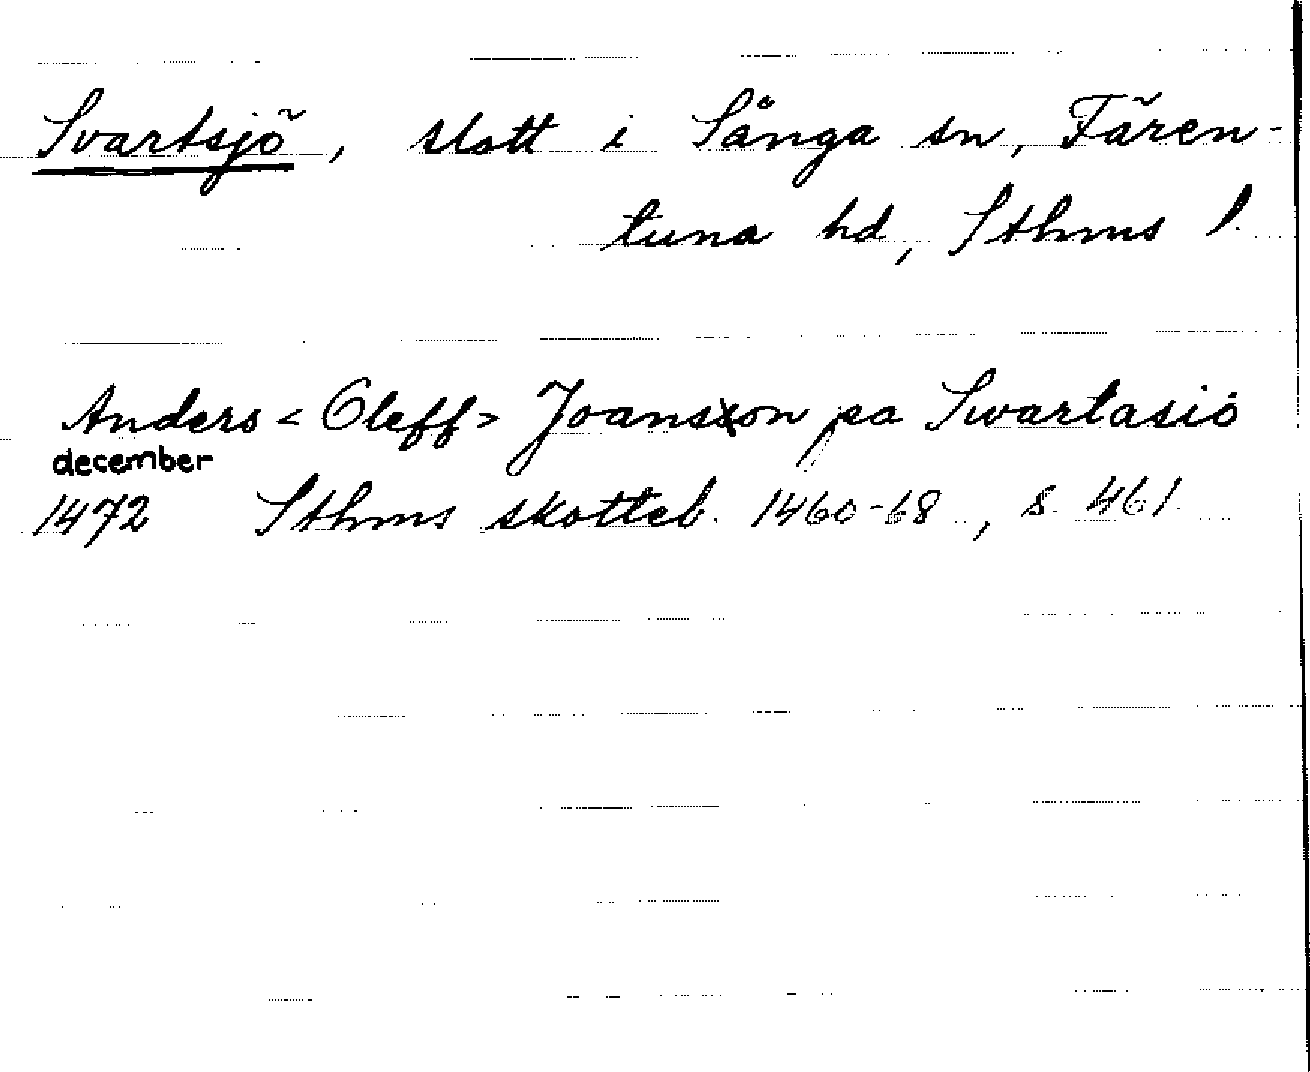 Svartsjö, slott i Sånga sn, Fären-
tuna hd, Sthms l.
Anders < Oleff > Joansson pa Swartasiö
december
1472 Sthms skotteb. 1460-68, s. 461